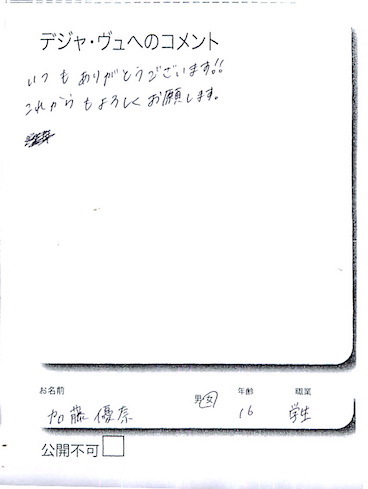 デジャ・ヴュへのコメント
いつもありがとうございます!!
これからもよろしくお願します。
お名前 男 女 年齢 職業
加藤優奈 16 学生
公開不可